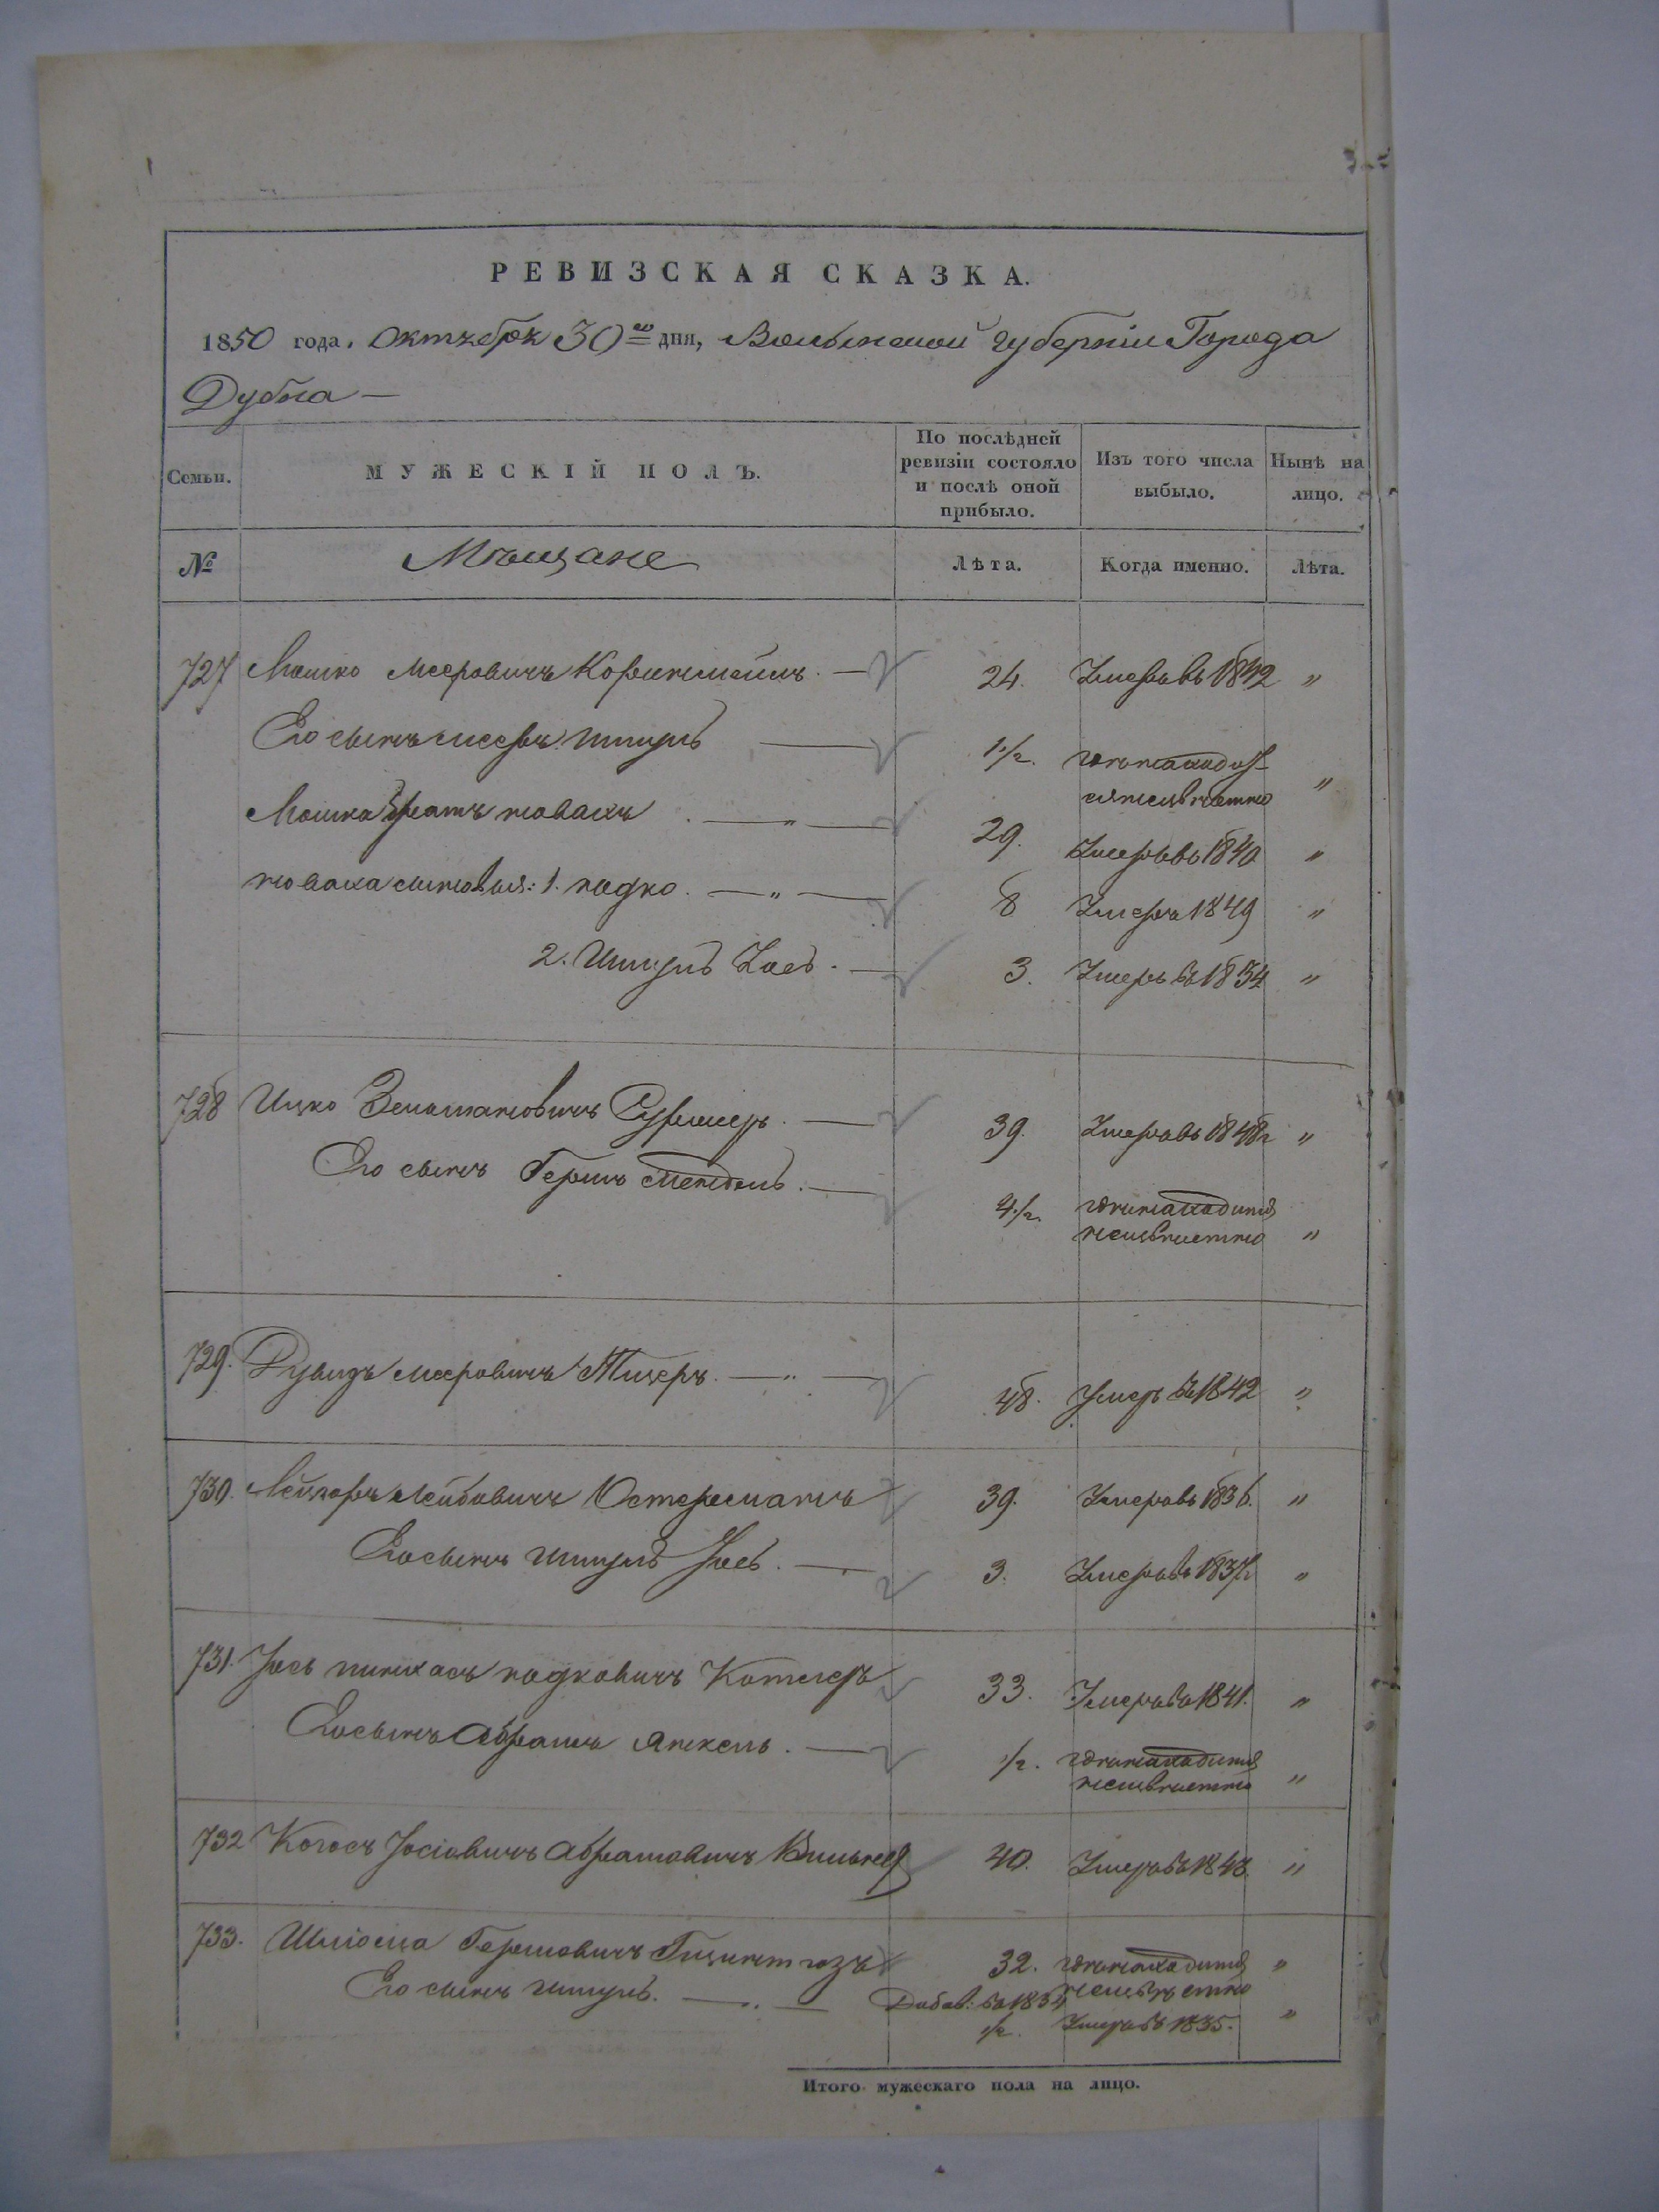 РЕВИЗСКАЯ СКАЗКА.
1850 года, Октября 30го дня, Волынской губерніи Города
Дубна —
Семьи.
МУЖЕСКІЙ ПОЛЪ.
По послѣдней ревизіи состояло и послѣ оной прибыло.
Изъ того числа выбыло.
Нынѣ на лицо.
№
Мѣщане
Лѣта.
Когда именно.
Лѣта.
727 Мошко Мееровичъ 24. Умеръ въ 1842 "
Его сынъ Мееръ Шмуль 1 1/2. "
Мошка братъ Новахъ 29. Умеръ въ 1840 "
Новаха сыновья: 1. 8 Умеръ 1849 "
2. Шмуль Іось 3. Умеръ въ 1834 "
728 Ицко Зельмановичъ 39. Умеръ въ 1848 г "
Его сынъ Гершъ Мендель. 4 1/2. находится
неизвѣстно "
729. Дувидъ Мееровичъ 48. Умеръ въ 1842 "
730. Лейзоръ Лейбовичъ Остерманъ 39. Умеръ въ 1836. "
Его сынъ Шмуль Іось. 3. Умеръ въ 1837 г "
731. Іось Пинхасъ Котлеръ 33. Умеръ въ 1841. "
Его сынъ Абрамъ Янкель. 1/2. находится
неизвѣстно "
732 Іосіовичъ Абрамовичъ 40. Умеръ въ 1843. "
733. Шліома Гершовичъ 32. находится "
неизвѣстно
Его сынъ Шмуль. Добав: въ 1834
1/2. Умеръ въ 1835. "
Итого мужескаго пола на лицо.